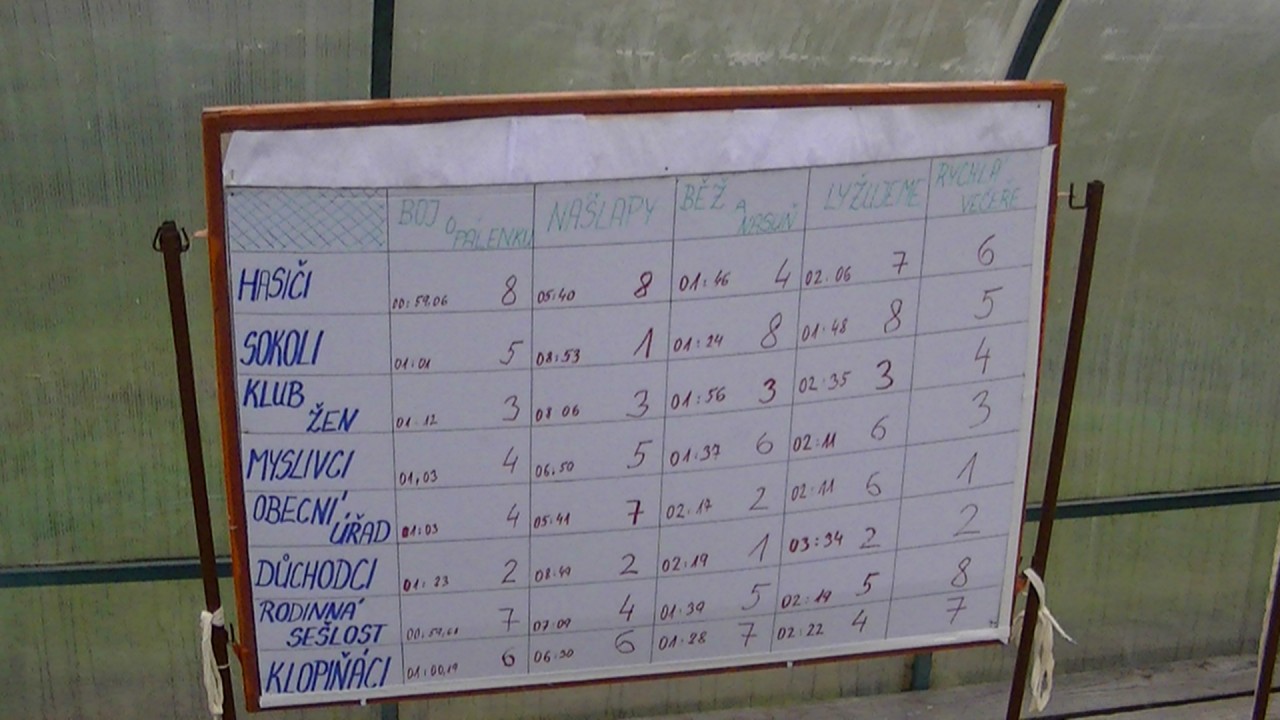 BOJ O PÁLENKU NAŠLAPY BĚŽ A NASUŇ LYŽUJEME RYCHLÁ VEČEŘE
HASIČI 00:59,06 8 05:40 8 01:46 4 02:06 7 6
SOKOLI 01:01 5 08:53 1 01:24 8 01:48 8 5
KLUB ŽEN 01:12 3 08 06 3 01:56 3 02:35 3 4
MYSLIVCI 01,03 4 06,50 5 01:37 6 02:11 6 3
OBECNÍ ÚŘAD 01:03 4 05:41 7 02:17 2 02:11 6 1
DŮCHODCI 01:23 2 08:49 2 02:19 1 03:34 2 2
RODINNÁ SEŠLOST 00:59,61 7 07:09 4 01:39 5 02:19 5 8
KLOPIŇÁCI 01:00,19 6 06:30 6 01:28 7 02:22 4 7